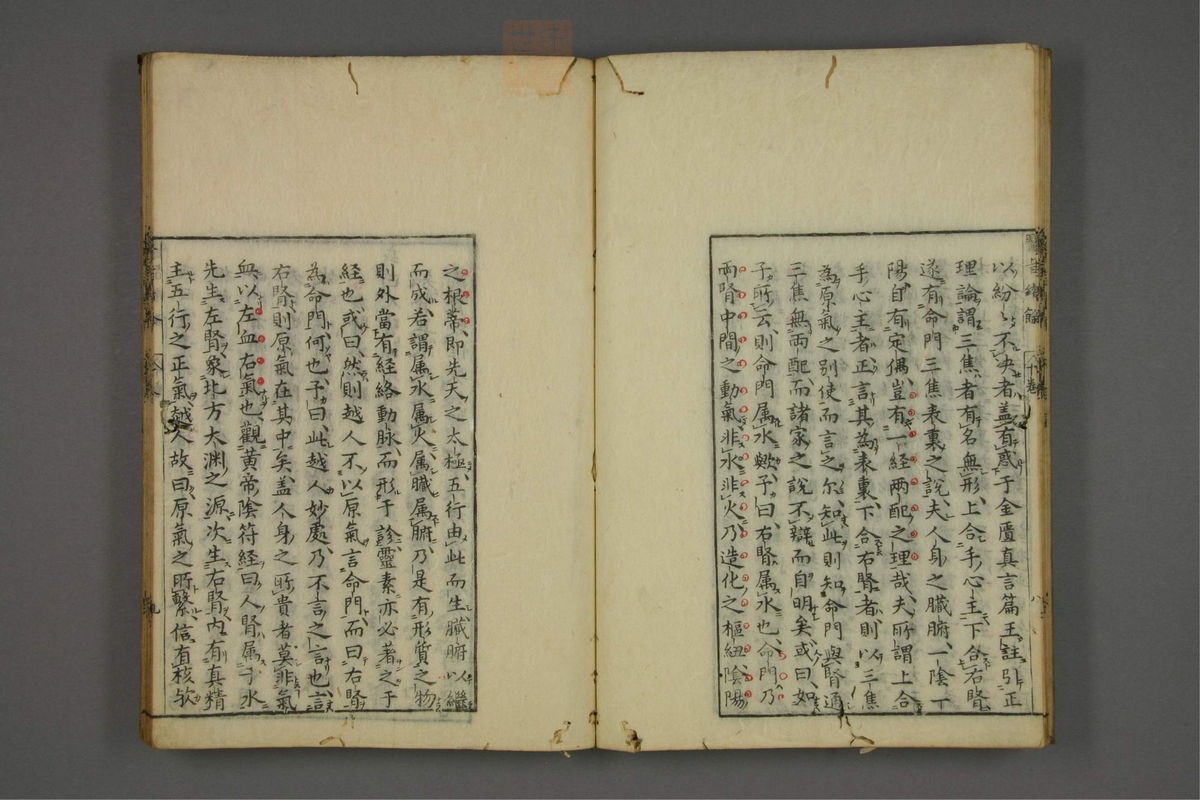 以紛〻不决者盖有惑于金匱真言篇王註引正
理論謂三焦者有名無形上合手心主下合右腎
遂有命門三焦表裏之說夫人身之臟腑一陰一
陽自有定偶豈有一經兩配之理哉夫所謂上合
手心主者正言其為表裏下合右腎者則以三焦
為原氣之别使而言之尔知此則知命門與腎通
三焦無兩配而諸家之說不辯而自明矣或曰如
子所云則命門属水歟予曰右腎属水也命門乃
兩腎中間之動氣非水非火乃造化之樞紐陰陽
之根蒂即先天之太極五行由此而生臟腑以繼
而成若謂属水属火属臟属腑乃是有形質之物
則外當有経絡動脉而形于診靈素亦必著之于
経也或曰然則越人不以原氣言命門而曰右腎
為命門何也予曰此越人妙處乃不言之言也言
右腎則原氣在其中矣盖人身之所貴者莫非氣
血以左血右氣也觀黄帝陰符経曰人腎属于水
先生左腎象北方大渊之源次生右腎内有真精
主五行之正氣越人故曰原氣之所繫信有核欤